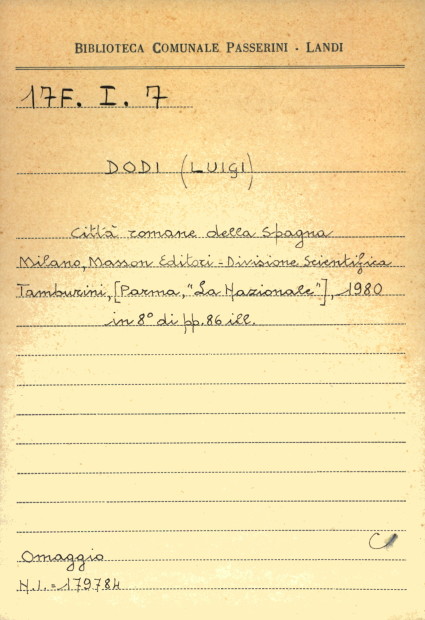 BIBLIOTECA COMUNALE PASSERINI - LANDI
17F. I. 7
DODI (LUIGI)
Città romane della Spagna
Milano, Masson Editori - Divisione Scientifica
Tamburini, [Parma, "La Nazionale"], 1980
in 8° di pp. 86 ill.
Omaggio
N.I. = 179784